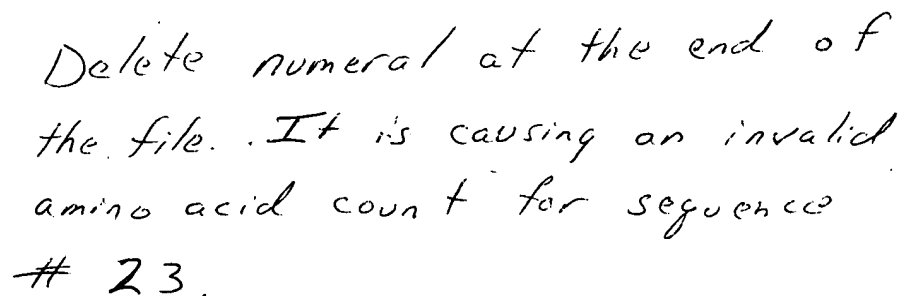 Delete numeral at the end of
the file. It is causing an invalid
amino acid count for sequence
# 23.